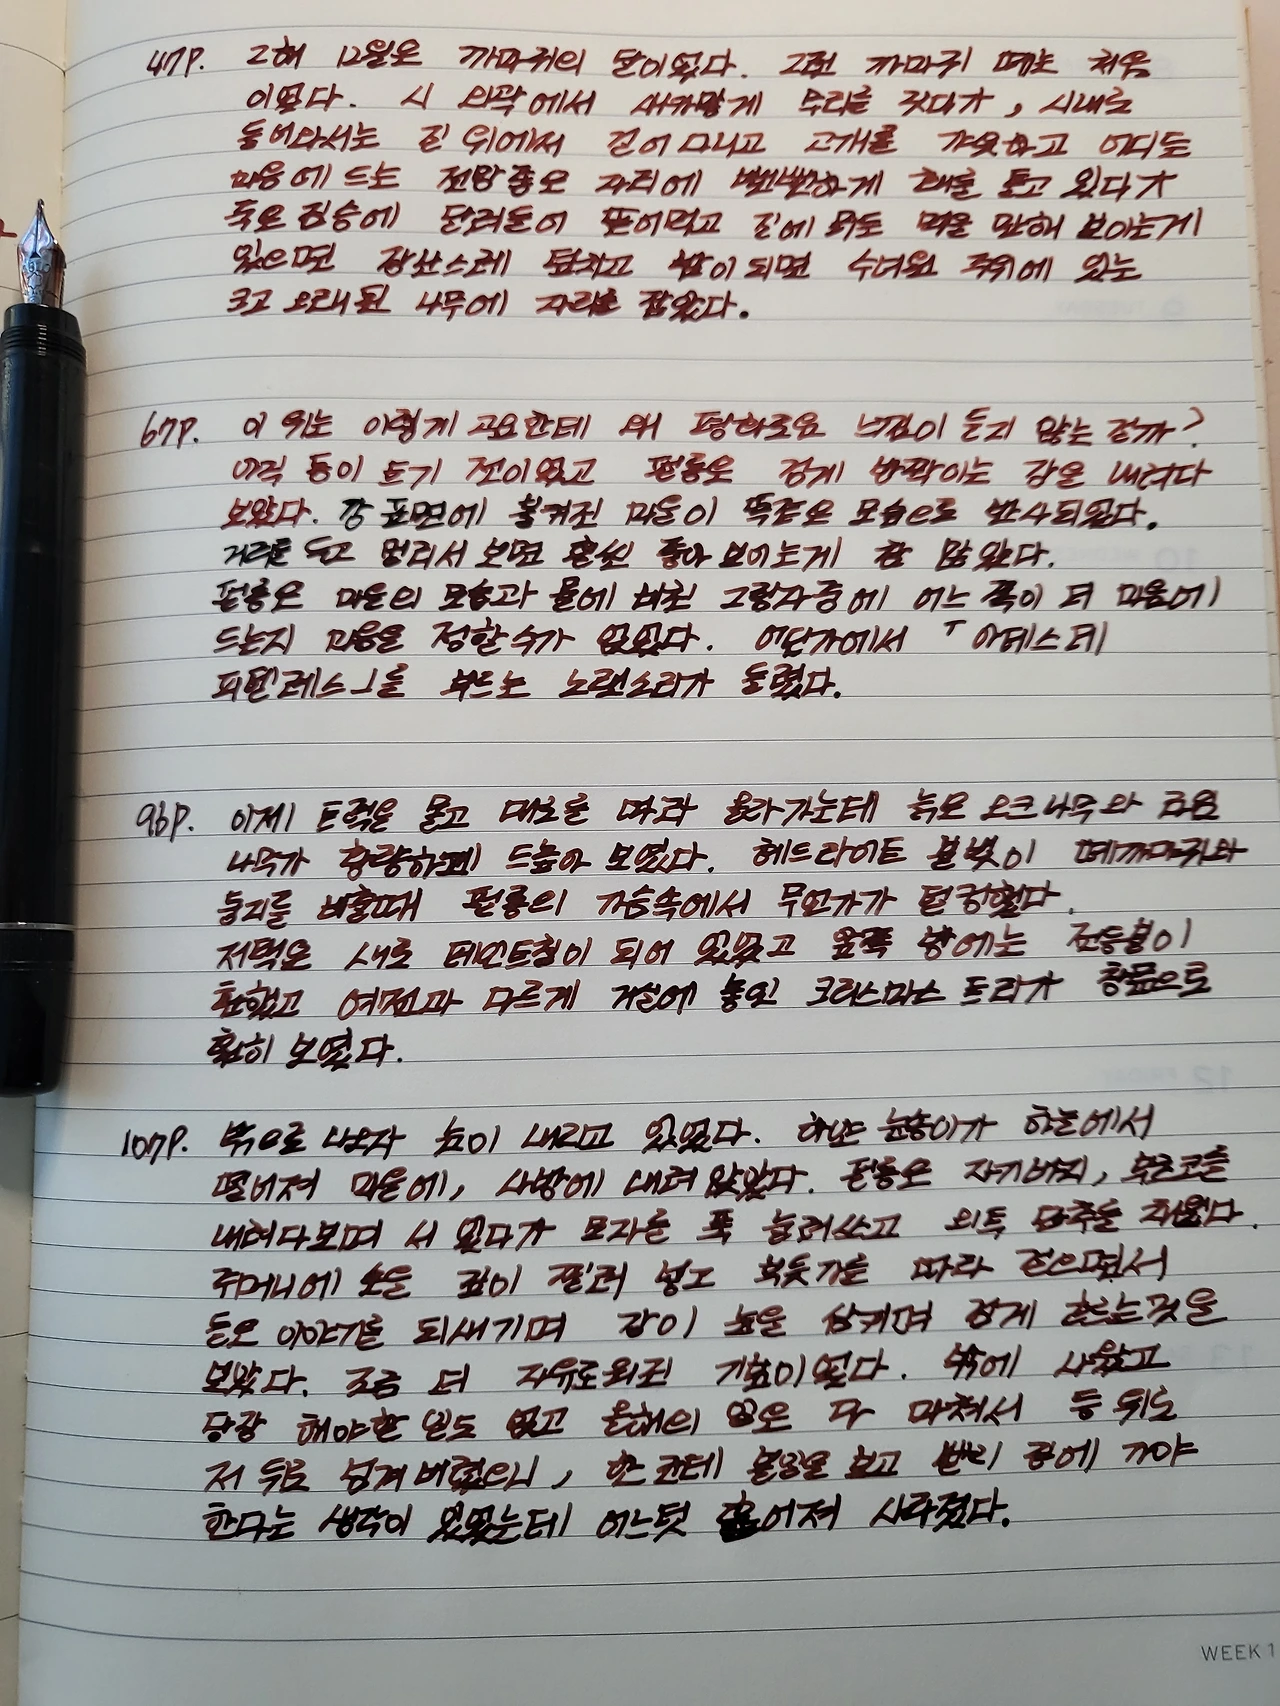 47P. 그해 12월은 까마귀의 달이었다. 그런 까마귀 떼는 처음
이었다. 시 외곽에서 새까맣게 무리를 짓다가, 시내로
들어와서는 길 위에서 걸어 다니고 고개를 갸웃하고 어디든
마음에 드는 전망 좋은 자리에 뻔뻔하게 홰를 틀고 있다가
죽은 짐승에 달려들어 뜯어먹고 길에 뭐든 먹을 만해 보이는게
있으면 장난스레 덮치고 밤이 되면 수녀원 주위에 있는
크고 오래된 나무에 자리를 잡았다.
67P. 이 위는 이렇게 고요한데 왜 평화로운 느낌이 들지 않는 걸까?
아직 동이 트기 전이었고 펄롱은 검게 반짝이는 강을 내려다
보았다. 강 표면에 불켜진 마을이 똑같은 모습으로 반사되었다.
거리를 두고 멀리서 보면 훨씬 좋아 보이는게 참 많았다.
펄롱은 마을의 모습과 물에 비친 그림자중에 어느 쪽이 더 마음에
드는지 마음을 정할 수가 없었다. 어딘가에서 「아데스테
피델레스」를 부르는 노랫소리가 들렸다.
96P. 이제 트럭을 몰고 대로를 따라 올라가는데 늙은 오크나무와 라임
나무가 황량하며 드높아 보였다. 헤드라이트 불빛이 떼까마귀와
둥지를 비출때 펄롱의 가슴속에서 무언가가 덜컹했다.
저택은 새로 페인트칠이 되어 있었고 앞쪽 방에는 전등불이
환했고 여전과 다르게 거실에 놓인 크리스마스 트리가 창문으로
훤히 보였다.
107P. 밖으로 나오자 눈이 내리고 있었다. 하얀 눈송이가 하늘에서
떨어져 마을에, 사방에 내려 앉았다. 펄롱은 자기바지, 부츠코를
내려다보며 서 있다가 모자를 푹 눌러쓰고 외투 단추를 채웠다.
주머니에 손을 깊이 찔러 넣고 부둣가를 따라 걸으면서
들은 이야기를 되새기며 강이 눈을 삼키며 검게 흐르는것을
보았다. 조금 더 자유로워진 기분이었다. 밖에 나왔고
당장 해야할 일도 없고 올해의 일은 다 마쳐서 등 뒤로
저 뒤로 넘겨 버렸으니, 한 번데 볼일을 보고 빨리 집에 가야
한다는 생각이 있었는데 어느덧 흩어져 사라졌다.
WEEK 1